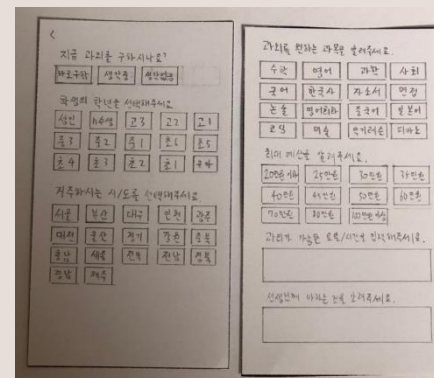 <
지금 과외를 구하시나요?
바로구함 생각중 생각없음
학생의 학년을 선택해주세요
성인 n수생 고3 고2 고1
중3 중2 중1 초6 초5
초4 초3 초2 초1 유아
거주하시는 시/도를 선택해주세요.
서울 부산 대구 인천 광주
대전 울산 경기 강원 충북
충남 세종 전북 전남 경북
경남 제주
과외를 원하는 과목을 알려주세요.
수학 영어 과학 사회
국어 한국사 자소서 면접
논술 영어회화 중국어 일본어
코딩 미술 악기레슨 피아노
최대 예산을 알려주세요.
20만원 이하 25만원 30만원 35만원
40만원 45만원 50만원 60만원
70만원 80만원 100만원 이상
과외가 가능한 요일/시간을 입력해주세요.
선생님께 바라는 점을 알려주세요.